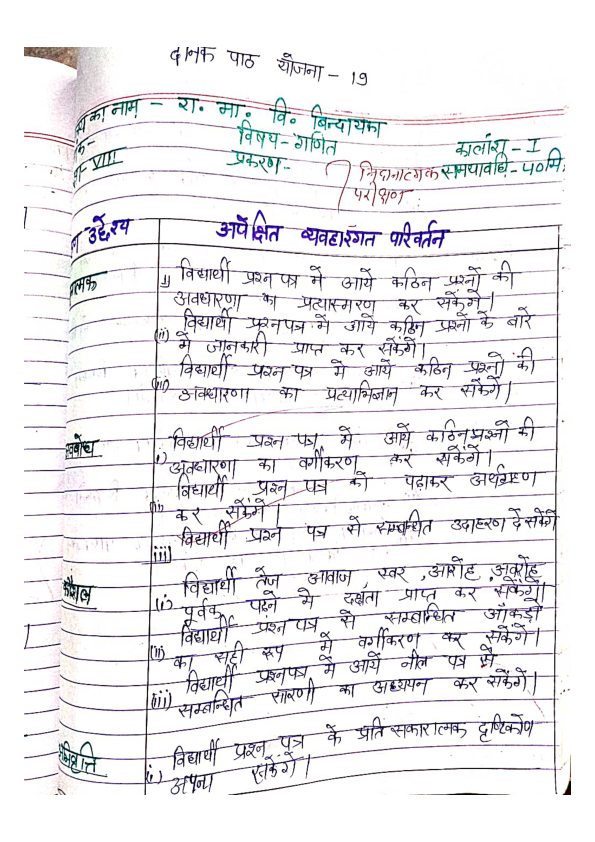 दैनिक पाठ योजना - 19
का नाम - रा. मा. वि. बिन्दायका
विषय - गणित
कालांश - I
VIII
प्रकरण - निदानात्मक परीक्षण
समयावधि - 40 मि.
उद्देश्य
अपेक्षित व्यवहारगत परिवर्तन
i) विद्यार्थी प्रश्न पत्र में आये कठिन प्रश्नों की
अवधारणा का प्रत्यास्मरण कर सकेंगे।
(ii) विद्यार्थी प्रश्नपत्र में आये कठिन प्रश्नों के बारे
में जानकारी प्राप्त कर सकेंगे।
(iii) विद्यार्थी प्रश्न पत्र में आये कठिन प्रश्नों की
अवधारणा का प्रत्याभिज्ञान कर सकेंगे।
i) विद्यार्थी प्रश्न पत्र में आये कठिन प्रश्नों की
अवधारणा का वर्गीकरण कर सकेंगे।
(ii) विद्यार्थी प्रश्न पत्र को पढ़ाकर अर्थग्रहण
कर सकेंगे।
iii) विद्यार्थी प्रश्न पत्र से सम्बन्धित उदाहरण दे सकेंगे
कौशल
(i) विद्यार्थी तेज आवाज स्वर, आरोह, अवरोह
पूर्वक पढ़ने में दक्षता प्राप्त कर सकेंगे।
(ii) विद्यार्थी प्रश्न पत्र से सम्बन्धित आँकड़ो
का सही रूप में वर्गीकरण कर सकेंगे।
(iii) विद्यार्थी प्रश्नपत्र में आयें नील पत्र से
सम्बन्धित सारणी का अध्ययन कर सकेंगे।
(i) विद्यार्थी प्रश्न पत्र के प्रति सकारात्मक दृष्टिकोण
अपना सकेंगे।